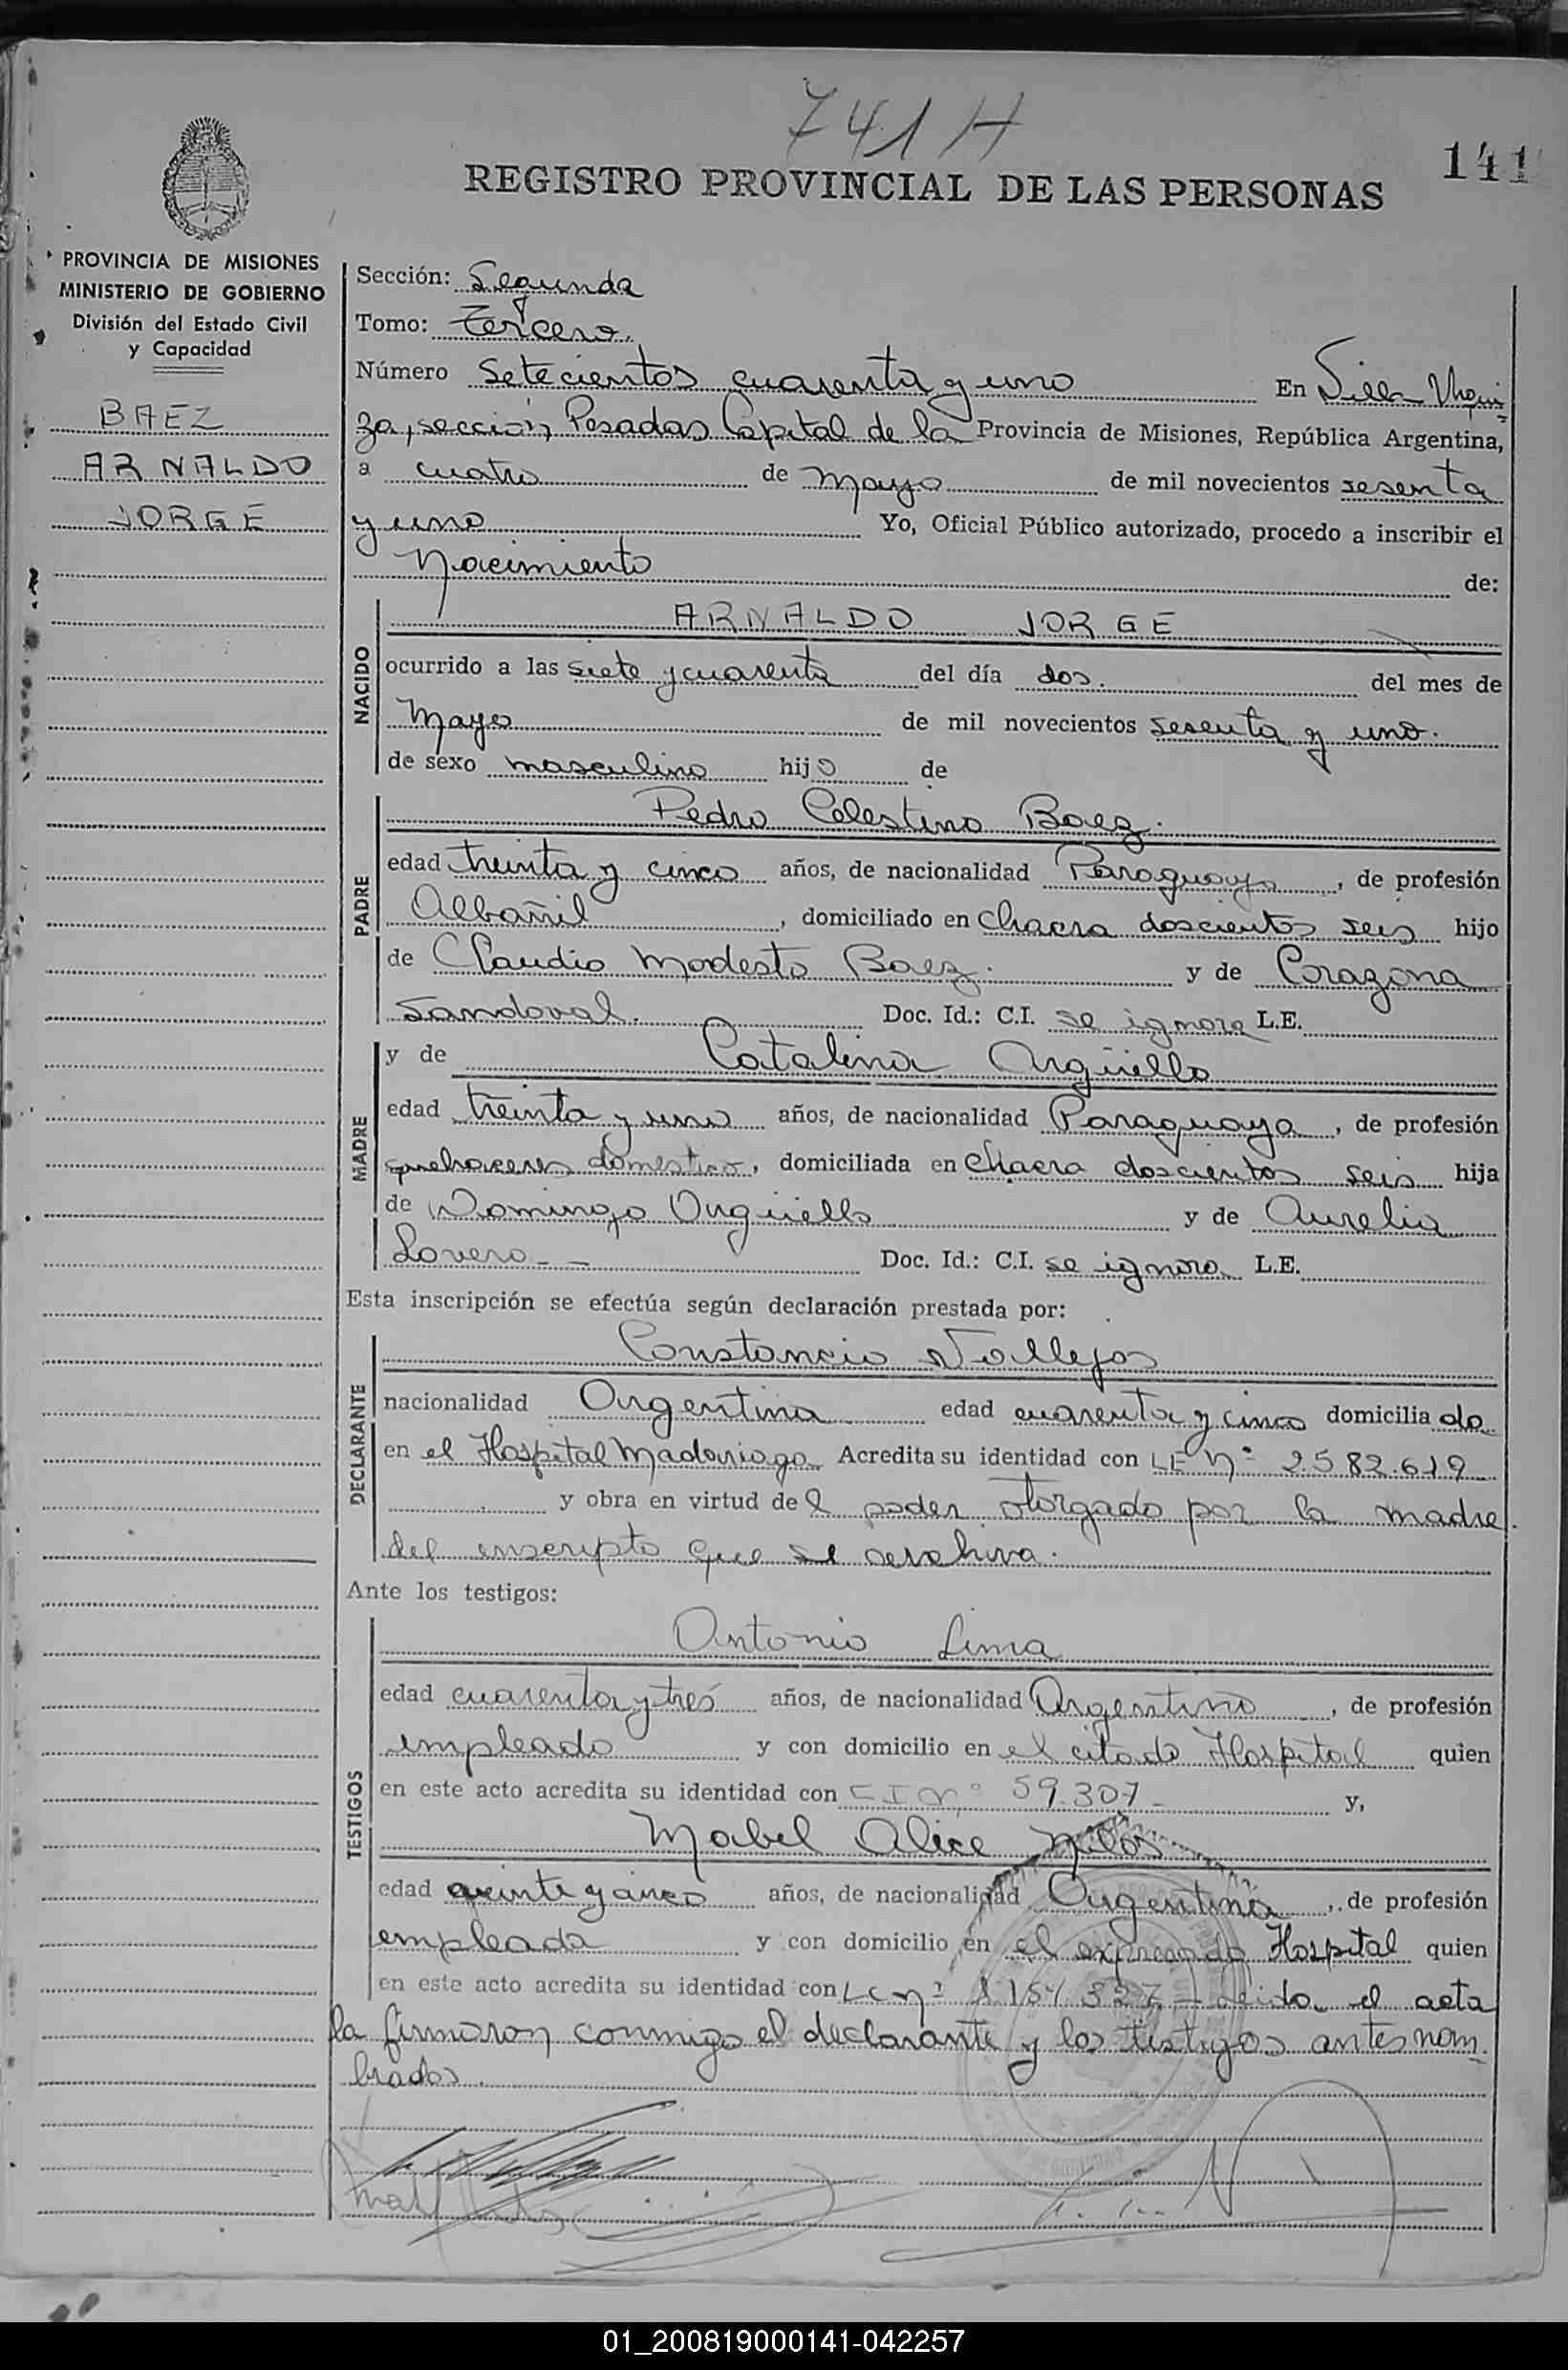 741 H
141
REGISTRO PROVINCIAL DE LAS PERSONAS
PROVINCIA DE MISIONES
MINISTERIO DE GOBIERNO
División del Estado Civil
y Capacidad
BAEZ
ARNALDO
JORGE
Sección: Segunda
Tomo: tercero.
Número setecientos cuarenta y uno En Villa Urqui
za, sección, Posadas Capital de la Provincia de Misiones, República Argentina,
a cuatro de mayo de mil novecientos sesenta
y uno Yo, Oficial Público autorizado, procedo a inscribir el
Nacimiento de:
NACIDO
ARNALDO JORGE
ocurrido a las siete y cuarenta del día dos. del mes de
Mayo de mil novecientos sesenta y uno.
de sexo masculino hijo de
PADRE
Pedro Celestino Baez.
edad treinta y cinco años, de nacionalidad Paraguaya, de profesión
Albañil, domiciliado en chacra doscientos seis hijo
de Claudio Modesto Baez. y de Corazona
Sandoval. Doc. Id.: C.I. se ignora L.E.
MADRE
y de Catalina Argüello
edad treinta y uno años, de nacionalidad Paraguaya, de profesión
quehaceres domestico, domiciliada en chacra doscientos seis hija
de Domingo Argüello y de Aurelia
Lovera - - Doc. Id.: C.I. se ignora L.E.
Esta inscripción se efectúa según declaración prestada por:
DECLARANTE
Constancio Vallejos
nacionalidad Argentina edad cuarenta y cinco domiciliado
en el Hospital Madariaga Acredita su identidad con LE Nº 2.582.619
y obra en virtud del poder otorgado por la madre
del inscripto que se archiva.
Ante los testigos:
TESTIGOS
Antonio Lima
edad cuarenta y tres años, de nacionalidad Argentino, de profesión
empleado y con domicilio en el citado Hospital quien
en este acto acredita su identidad con C I Nº 59.307 - y,
Mabel Alice
edad veinte y cinco años, de nacionalidad Argentina, de profesión
empleada y con domicilio en el expresado Hospital quien
en este acto acredita su identidad con LC Nº 1154 327 - Leida el acta
la firmaron conmigo el declarante y los testigos antes nom
brados.
01_200819000141-042257